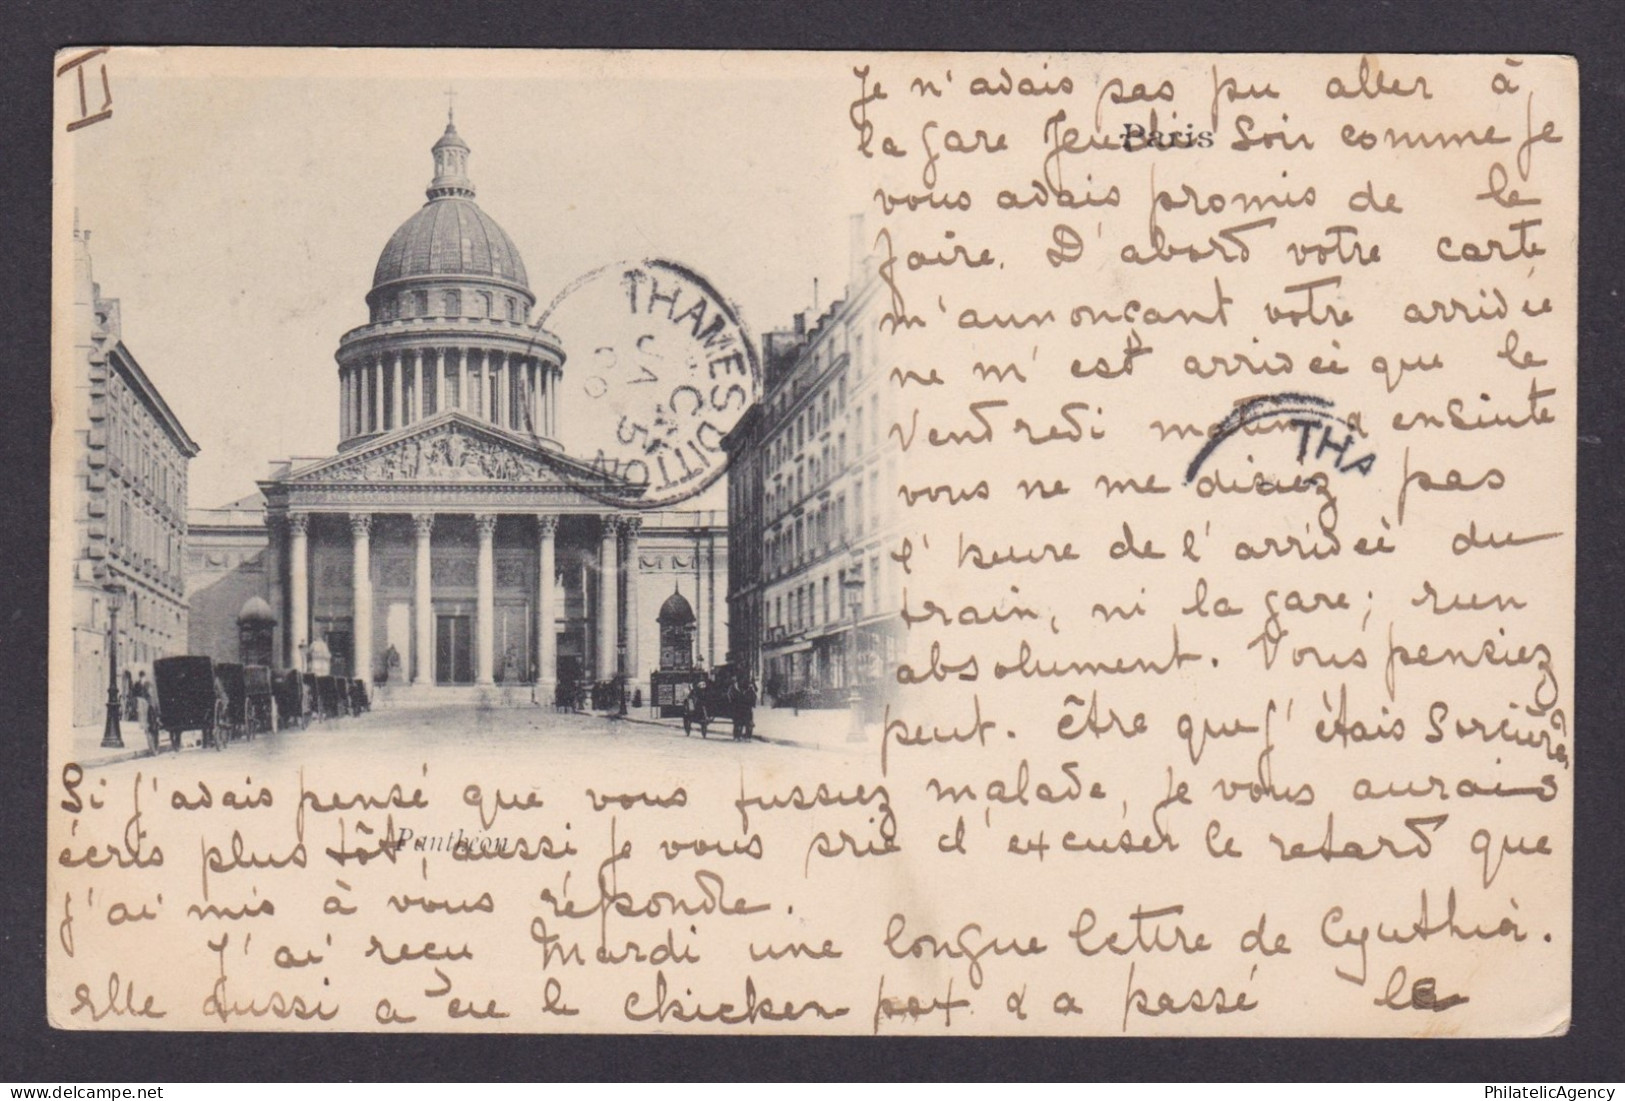 II
Je n'avais pas pu aller à
la gare Jeudi soir comme je
Paris
vous avais promis de le
faire. D'abord votre carte
m'annonçant votre arrivée
ne m'est arriveé que le
Vendredi matin & ensuite
vous ne me disiez pas
l'heure de l'arriveé du
train, ni la gare; rien
absolument. Vous pensiez
peut. être que j'étais Sorcière
Si j'avais pensé que vous fussiez malade, je vous aurais
écris plus tôt, aussi je vous prie d'excuser le retard que
Panthéon
j'ai mis à vous répondre.
J'ai reçu Mardi une longue lettre de Cynthia.
Elle aussi a eu le chicken pox & a passé le
THAMES DITTON
JA 5
06
THA
PhilatelicAgency